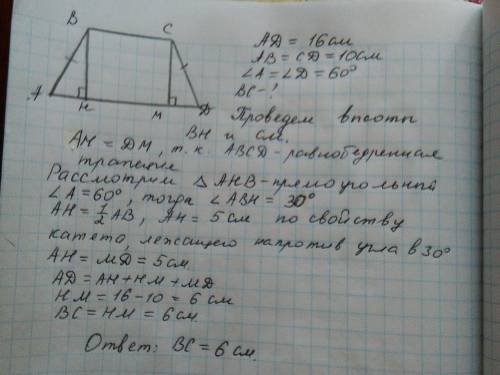 B C
A H M D
AD = 16 см
AB = CD = 10 см
∠A = ∠D = 60°
BC - ?
Проведем высоты
BH и CM.
AH = DM, т.к. ABCD - равнобедренная
трапеция
Рассмотрим △ AHB - прямоугольный
∠A = 60°, тогда ∠ABH = 30°
AH = 1/2 AB, AH = 5 см по свойству
катета, лежащего напротив угла в 30°
AH = MD = 5 см.
AD = AH + HM + MD
HM = 16 - 10 = 6 см
BC = HM = 6 см.
Ответ: BC = 6 см.